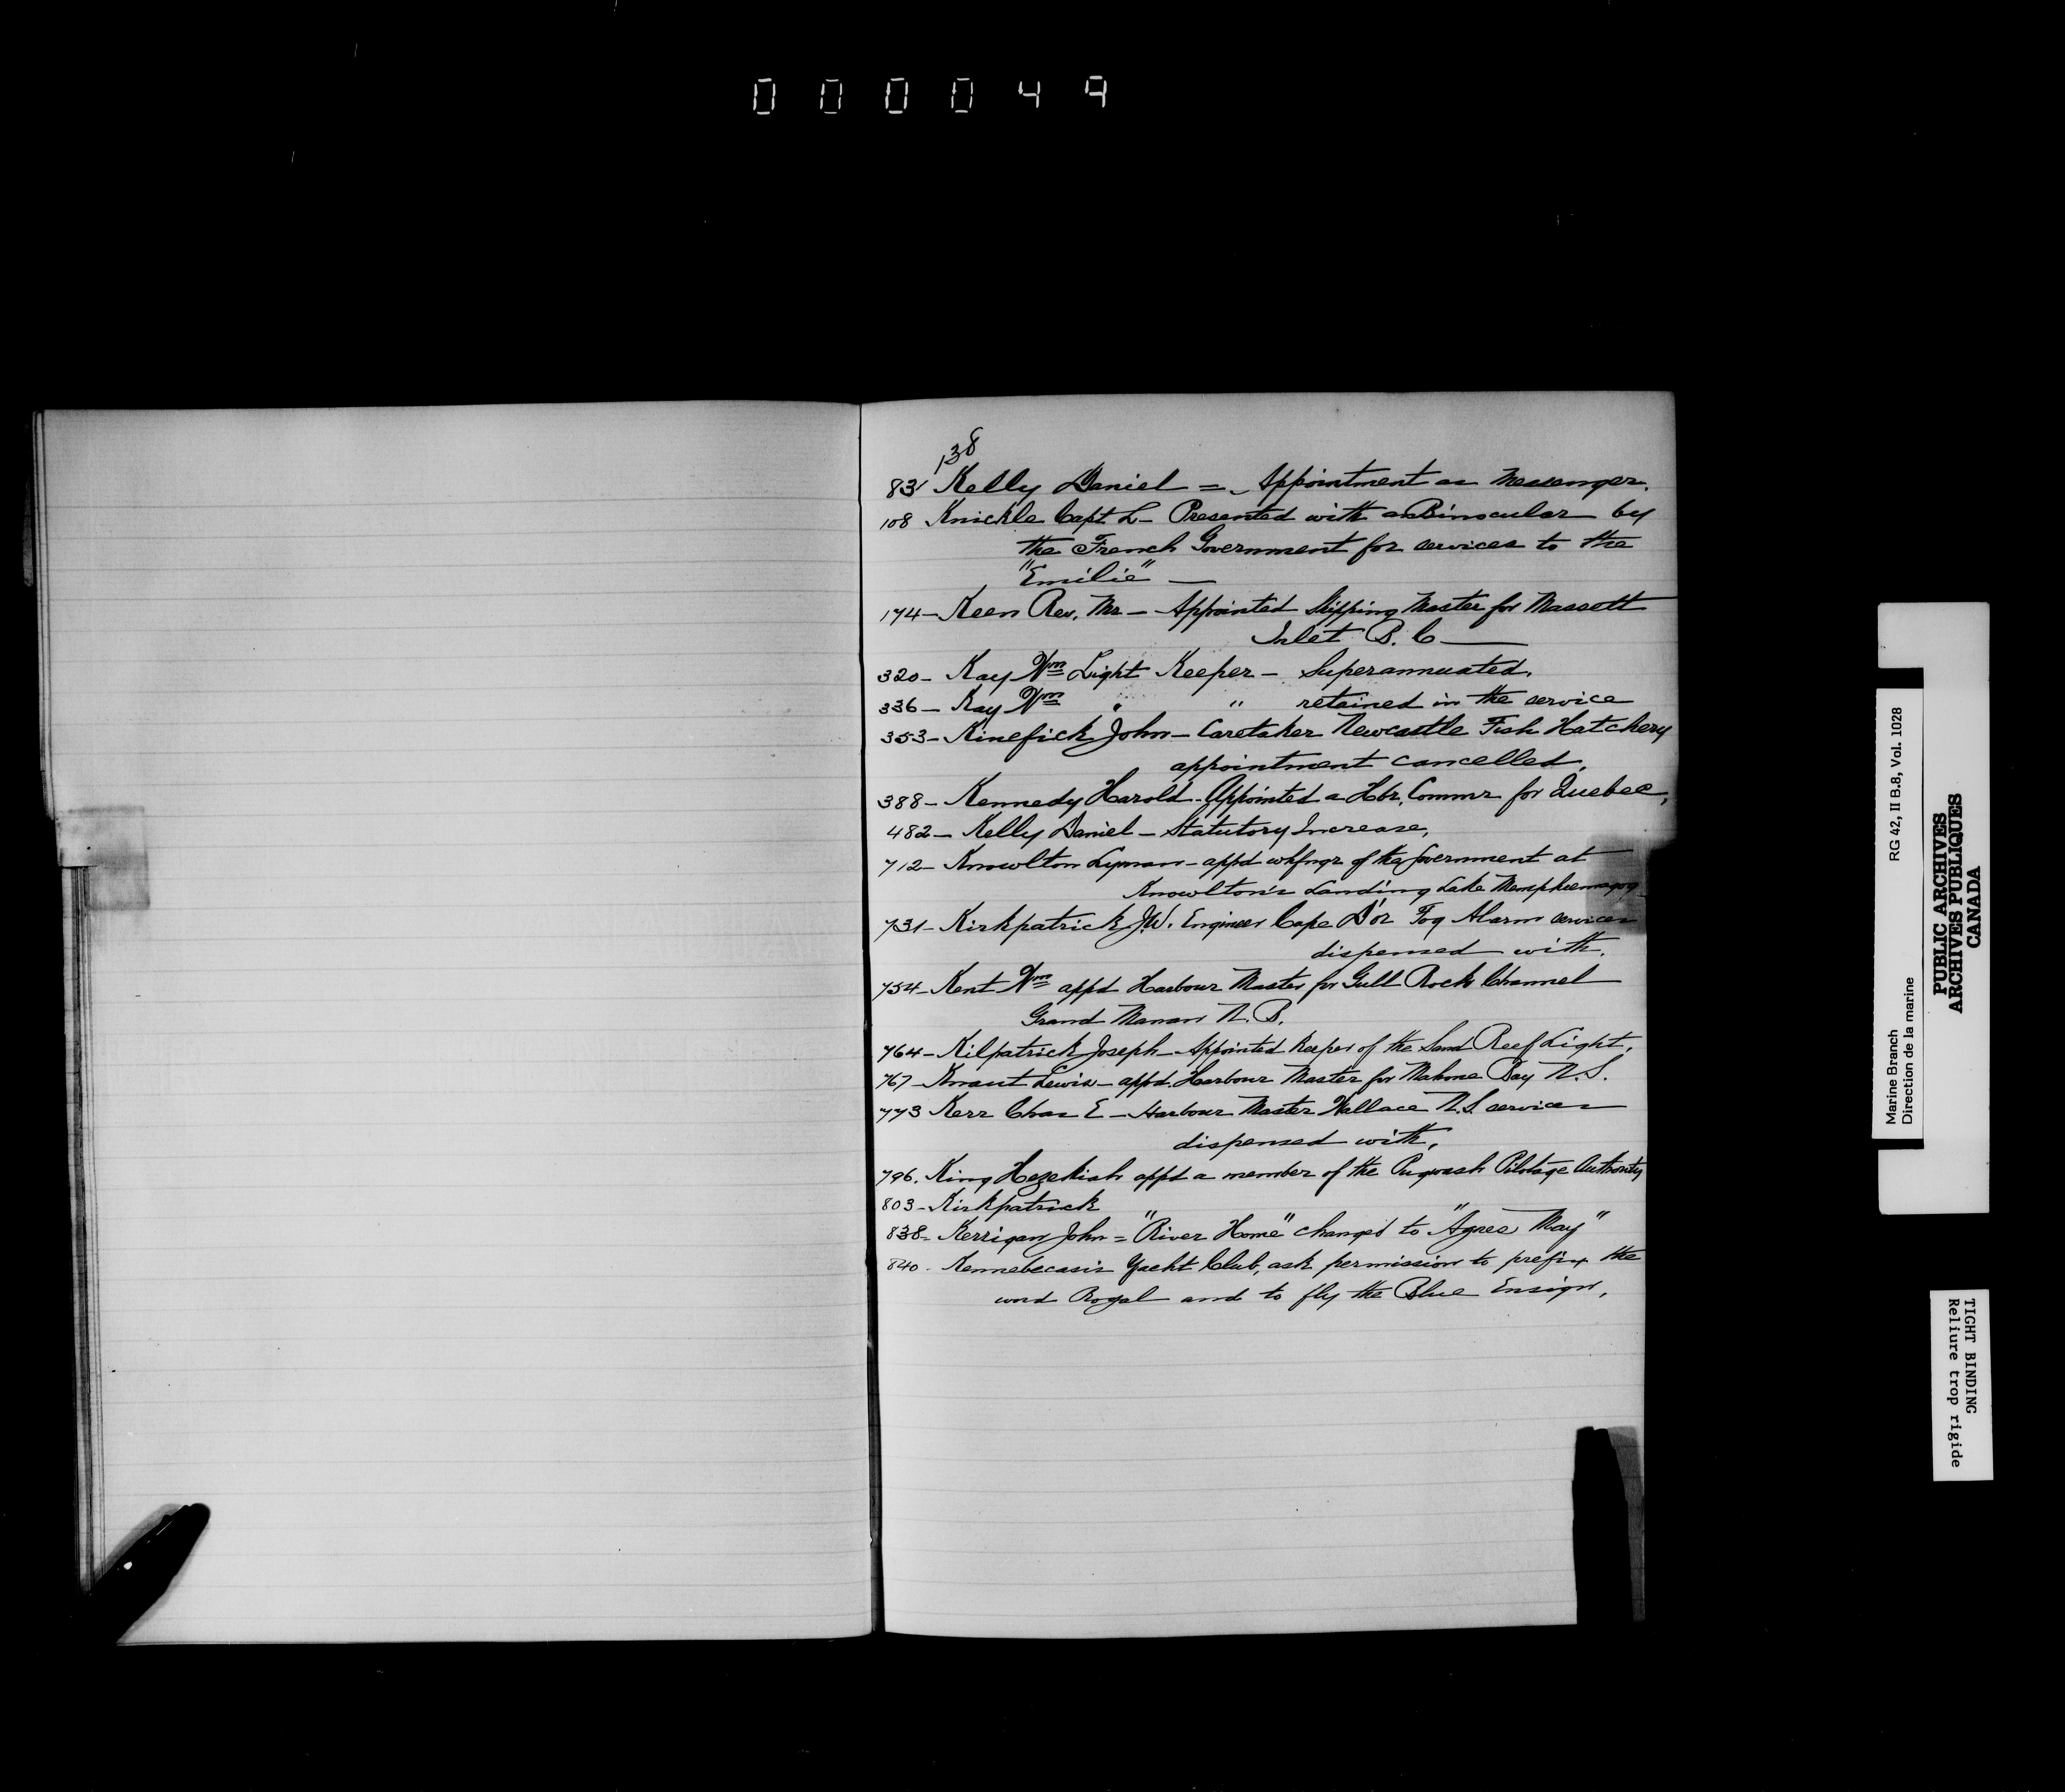 000049
138
83 Kelly Daniel = Appointment as Messenger.
108 Knickle Capt. L - Presented with a Binocular by
the French Government for services to the
"Emilie" —
174 - Keen Rev. Mr - Appointed Shipping Master for Massett
Inlet B. C —
320 - Kay Wm Light Keeper - Superannuated.
336 - Kay Wm " " retained in the service
353 - Kinefick John - Caretaker Newcastle Fish Hatchery
appointment cancelled.
388 - Kennedy Harold - Appointed a Hbr. Commr for Quebec,
482 - Kelly Daniel - Statutory Increase,
712 - Knowlton Lyman - appd whfngr of the Government at
Knowlton's Landing Lake Memphremagog
731 - Kirkpatrick J.W. Engineer Cape D'or Fog Alarm services
dispensed with.
754 - Kent Wm appd Harbour Master for Gull Rock Channel
Grand Manan N. B.
764 - Kilpatrick Joseph - Appointed Keeper of the Sand Reef Light.
767 - Knaut Lewis - appd. Harbour Master for Mahone Bay N. S.
773 Kerr Chas E - Harbour Master Wallace N.S. services
dispensed with.
796. King Hezekiah appd a member of the Pugwash Pilotage Authority
803 - Kirkpatrick
838 - Kerrigan John = "River Home" changed to "Agnes May"
840 - Kennebecasis Yacht Club, ask permission to prefix the
word Royal and to fly the Blue Ensign.
Marine Branch
Direction de la marine
RG 42, II B.8, Vol. 1028
PUBLIC ARCHIVES
ARCHIVES PUBLIQUES
CANADA
TIGHT BINDING
Reliure trop rigide